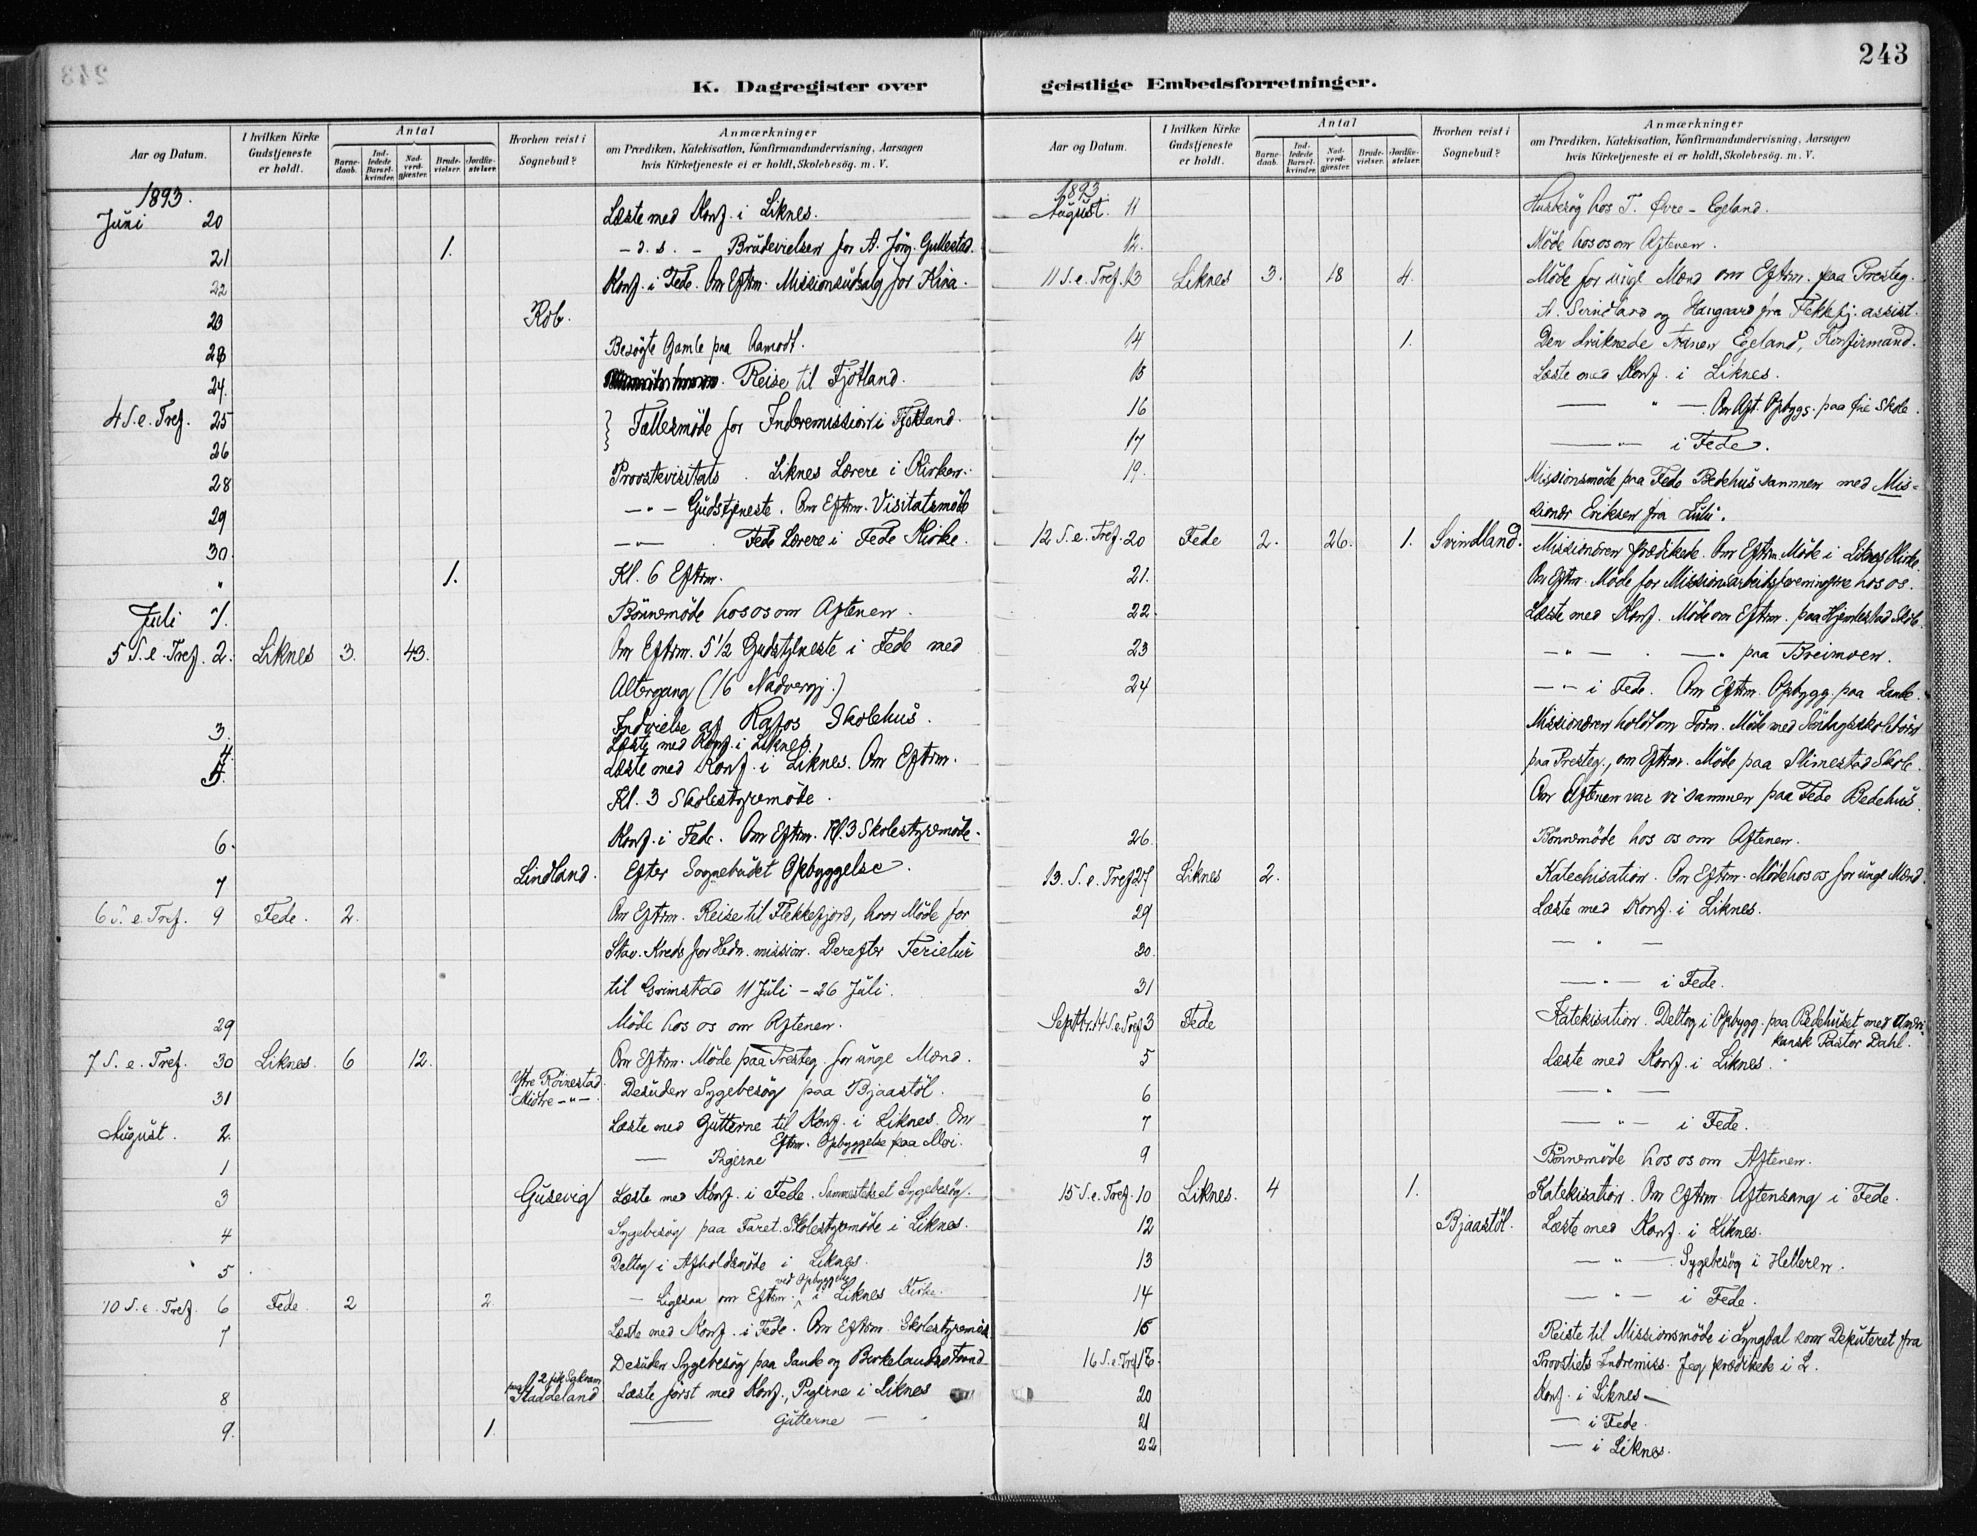 243
K. Dagregister over geistlige Embedsforretninger.
Aar og Datum.
I hvilken Kirke Gudstjeneste er holdt.
Antal
Barnedaab.
Indledede Barselkvinder.
Nadverdgjæster.
Brudevielser.
Jordfæstelser.
Hvorhen reist i Sognebud?
Anmærkninger
om Prædiken, Katekisation, Konfirmandundervisning, Aarsagen
hvis Kirketjeneste ei er holdt, Skolebesøg. m. V.
1893.
Juni 20 Læste med Konf. i Liknes.
21 1. - d. s. - Brudevielsen for A. Jörg. Gullestad.
22 Konf. i Fede. Om Eftm. Missionsudsalg for Kina.
23 Rob.
28 Besøgte Gamle paa Aamodt.
24. Reise til Fjotland.
4 S. e. Tref. 25 Fællesmøde for Indremission i Fjotland.
26
28 Provstevisitats. Liknes Lærere i Kirken.
29 - " - Gudstjeneste. Om Eftm. Visitatsmøde
30. - " - Fede Lærere i Fede Kirke.
" 1. Kl. 6 Eftm.
Juli 1. Bönnemøde hos os om Aftenen.
5 S. e. Tref. 2. Liknes 3. 43. Om Eftrm. 5 1/2 Gudstjeneste i Fede med
Altergang (16 Nadvergj.)
3. Indvielse af Rafos Skolehus.
4 Læste med Konf. i Liknes.
5. Læste med Konf. i Liknes. Om Eftrm.
Kl. 3 Skolestyremøde.
6. Konf. i Fede. Om Eftrm. Kl. 3 Skolestyremøde.
7 Lindland. Efter Sognebudet Opbyggelse.
6 S. e. Tref. 9 Fede. 2. Om Eftrm. Reise til Flekkefjord, hvor Møde for
Stav. Kreds for Hedn. mission. Derefter Ferietur
til Grimstad 11 Juli - 26 Juli.
29 Møde hos os om Aftenen.
7 S. e. Tref. 30 Liknes. 6 12. Om Eftrm. Møde paa Presteg. for unge Mænd.
31 Ytre Röinestad Midtre - " - Desuden Sygebesøg paa Bjaastöl.
August. 2. Læste med Gutterne til Konf. i Liknes. Om
Eftm. Opbyggelse paa Moi.
1 — Pigerne —
3 Gusevig Læste med Konf. i Fede. Sygebesøg.
4 Sygebesøg paa Faret. Skolestyremøde i Liknes.
5 Deltog i Afholdsmøde i Liknes.
10 S. e. Tref. 6 Fede 2 2 - Ligesaa om Eftm. ved Opbyggelse i Liknes Kirke.
7 Læste med Konf. i Fede. Om Eftrm. Skolestyremøde
Desuden Sygebesøg paa Sande og Birkelandsstrand
8 paa Staddeland Læste først med Konf., Pigerne i Liknes
9. 1. — Gutterne —
Aar og Datum.
I hvilken Kirke Gudstjeneste er holdt.
Antal
Barnedaab.
Indledede Barselkvinder.
Nadverdgjæster.
Brudevielser.
Jordfæstelser.
Hvorhen reist i Sognebud?
Anmærkninger
om Prædiken, Katekisation, Konfirmandundervisning, Aarsagen
hvis Kirketjeneste ei er holdt, Skolebesøg. m. V.
1893.
August. 11 Husbesøg hos T. Øvre-Egeland.
12. Møde hos os om Aftenen.
11 S. e. Tref. 13 Liknes 3. 18 4. Møde for unge Mænd om Eftrm. paa Presteg.
A. Svindland og Haugaard fra Flekkefj. assist.
14 1. Den druknede Egeland, Konfirmand.
15 Læste med Konf. i Liknes.
16 — " — Om Aft. Opbygg. paa Øie Skole.
17 — " — i Fede.
19. Missionsmøde paa Fede Bedehus sammen med Mis-
sionær Eriksen fra Zulu.
12 S. e. Tref. 20 Fede 2. 26. 1. Svindland. Missionæren prædikede. Om Eftrm. Møde i Liknes Kirke.
21. Om Eftm. Møde for Missionsarbeidsforeningerne hos os.
22. Læste med Konf. Møde om Eftrm. paa Hjemlestad Skole.
23 - " - . - " paa Breimoen.
24 - " - i Fede. Om Eftrm. Opbygg. paa Sande.
Missionæren holdt om Form. Møde med Söndagsskolebörn
paa Presteg., om Eftrm. Møde paa Slimestad Skole.
Om Aftenen var vi sammen paa Fede Bedehus.
26. Bönnemøde hos os om Aftenen.
13. S. e. Tref. 27 Liknes 2. Katechisation. Om Eftrm. Møde hos os for unge Mænd.
29 Læste med Konf. i Liknes.
30. — " —
31 — " — i Fede.
Septbr. 14 S. e. Tref 3 Fede Katekisation. Deltog i Opbygg. paa Bedehuset med Ameri-
kansk Pastor Dahl.
5 Læste med Konf. i Liknes.
6 — " —
7 — " — i Fede.
9 Bönnemøde hos os om Aftenen.
15 S. e. Tref. 10 Liknes. 4 1. Katekisation. Om Eftrm. Aftensang i Fede.
12 Bjaastöl. Læste med Konf. i Liknes.
13 — " — . Sygebesøg i Helleren.
14 — " — i Fede.
15 Reiste til Missionsmøde i Lyngdal som Deputeret fra
16 S. e. Tref. 17 Provstiets Indremiss. Jeg prædikede i L.
20 Konf. i Liknes —
21 — i Fede.
22 — i Liknes.